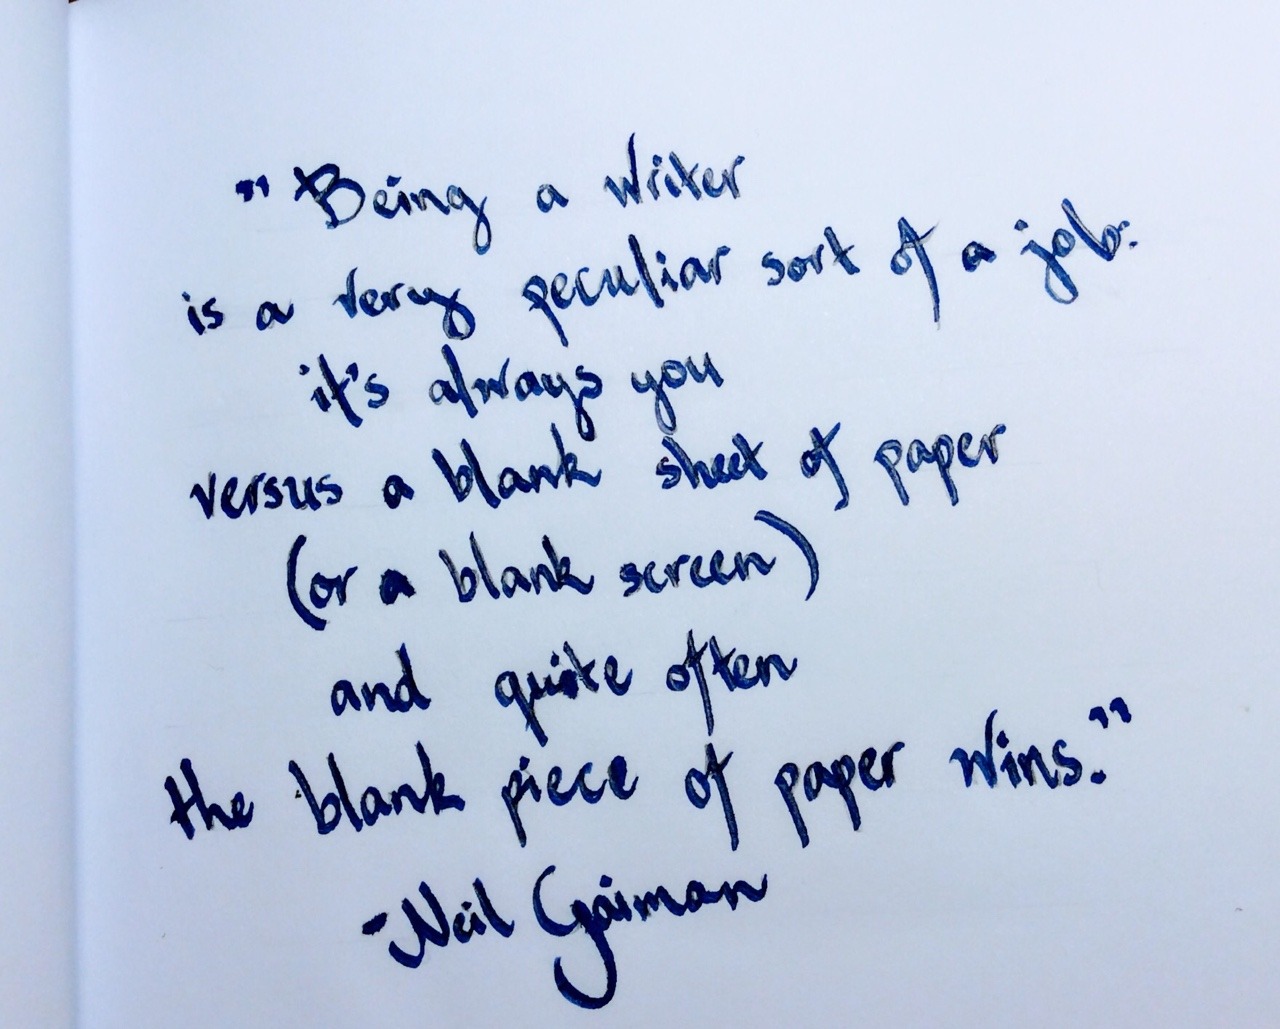 "Being a writer
is a very peculiar sort of a job:
it's always you
versus a blank sheet of paper
(or a blank screen)
and quite often
the blank piece of paper wins."
-Neil Gaiman